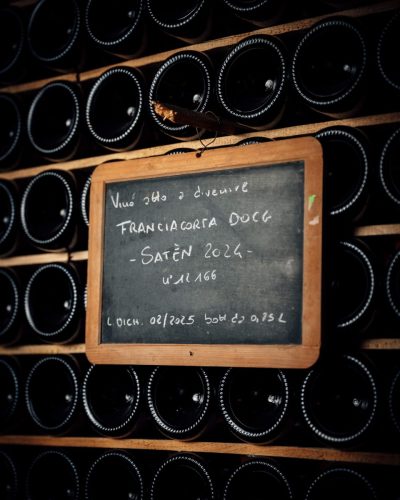 Vino atto a divenire
FRANCIACORTA DOCG
- SATÈN 2024 -
n° 12 166
L. DICH. 02/2025 bott da 0,75 L